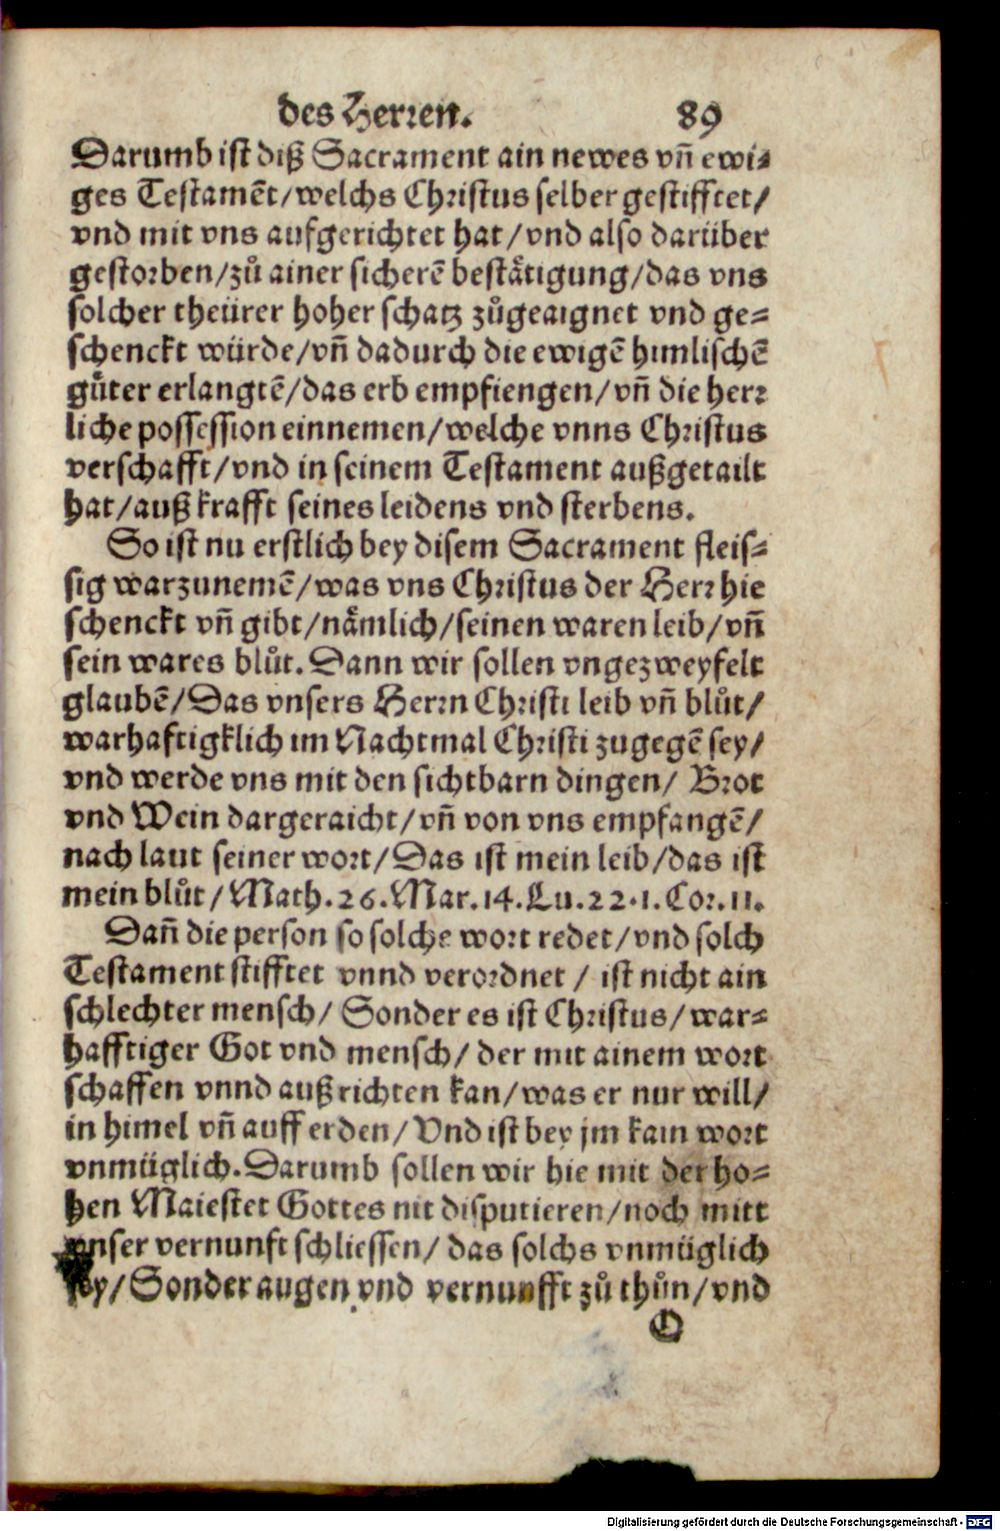 des Herren. 89
Darumb ist diß Sacrament ain newes vñ ewi⸗
ges Testamēt/welchs Christus selber gestifftet/
vnd mit vns aufgerichtet hat/vnd also darüber
gestorben/zů ainer sicherē beståtigung/das vns
solcher theürer hoher schatz zůgeaignet vnd ge⸗
schenckt würde/vñ dadurch die ewigē himlischē
gůter erlangtē/das erb empfiengen/vñ die herr
liche possession einnemen/welche vnns Christus
verschafft/vnd in seinem Testament außgetailt
hat/auß krafft seines leidens vnd sterbens.
So ist nu erstlich bey disem Sacrament fleis⸗
sig warzunemē/was vns Christus der Herr hie
schenckt vñ gibt/nåmlich/seinen waren leib/vñ
sein wares blůt. Dann wir sollen vngezweyfelt
glaubē/Das vnsers Herrn Christi leib vñ blůt/
warhaftigklich im Nachtmal Christi zugegē sey/
vnd werde vns mit den sichtbarn dingen/ Brot
vnd Wein dargeraicht/vñ von vns empfangē/
nach laut seiner wort/Das ist mein leib/das ist
mein blůt/Math.26.Mar.14.Lu.22.1.Cor.11.
Dañ die person so solche wort redet/vnd solch
Testament stifftet vnnd verordnet / ist nicht ain
schlechter mensch/ Sonder es ist Christus/war⸗
hafftiger Got vnd mensch/ der mit ainem wort
schaffen vnnd außrichten kan/was er nur will/
in himel vñ auff erden/ Vnd ist bey jm kain wort
vnmüglich. Darumb sollen wir hie mit der ho⸗
hen Maiestet Gottes nit disputieren/noch mitt
vnser vernunft schliessen/ das solchs vnmüglich
sey/Sonder augen vnd vernunfft zů thůn/vnd
O
Digitalisierung gefördert durch die Deutsche Forschungsgemeinschaft - DFG